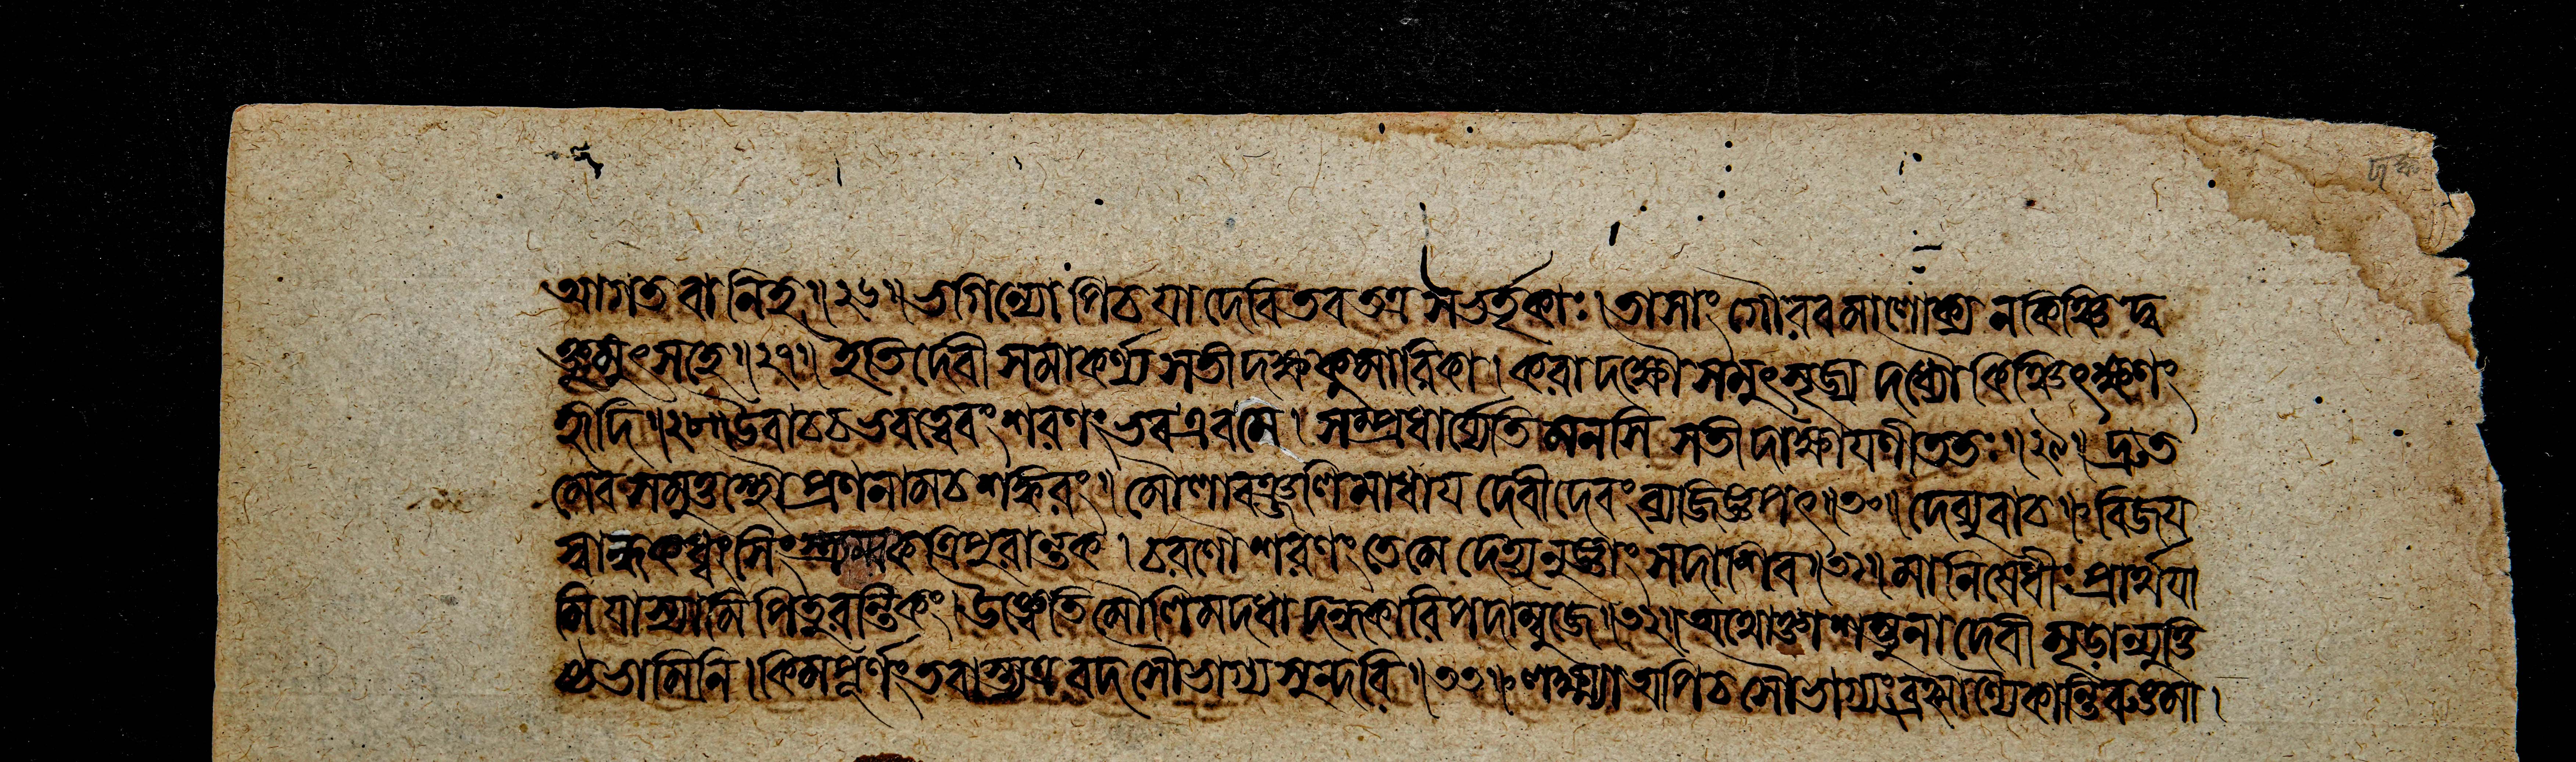 আগতবানিহ॥২৬॥ভগিন্যোপিচযাদেবিতবতত্রসভর্তৃকাঃ।তাসাংগৌরবমালোক্যনকিঞ্চিদ্ব
ক্তুমুৎসহে॥২৭॥ইতিদেবীসমাকর্ণ্যসতীদক্ষকুমারিকা।করাদক্ষৌসমুৎসৃজ্যদধ্যৌকিঞ্চিৎক্ষণং
হৃদি॥২৮॥উবাচচভবত্বেবংশরণংভবএবমে।সম্প্রধার্য্যেতিমনসিসতীদাক্ষাযণীততঃ॥২৯॥দ্রুত
মেবসমুত্তস্থৌপ্রণনামচশঙ্করং॥মৌলাবঞ্জলিমাধাযদেবীদেবংব্যজিজ্ঞপৎ॥৩০॥দেব্যুবাচ॥বিজয
স্বান্ধকধ্বংসিংস্ত্র্যম্বকত্রিপুরান্তক।চরণৌশরণংতেমেদেহ্যনুজ্ঞাংসদাশিব॥৩১॥মানিষেধীঃপ্রার্থযা
মিযাস্যামিপিতুরন্তিকং।উক্ত্বেতিমৌলিমদধাদন্ধকারিপদাম্বুজে॥৩২॥অথোক্তাশম্ভুনাদেবীমৃডান্যুত্তি
ষ্ঠভামিনি।কিমপূর্ণংতবাস্ত্যত্রবদসৌভাগ্যসুন্দরি॥৩৩॥লক্ষ্ম্যাঅপিচসৌভাগ্যংব্রহ্মাণ্যৈকান্তিরুত্তমা।